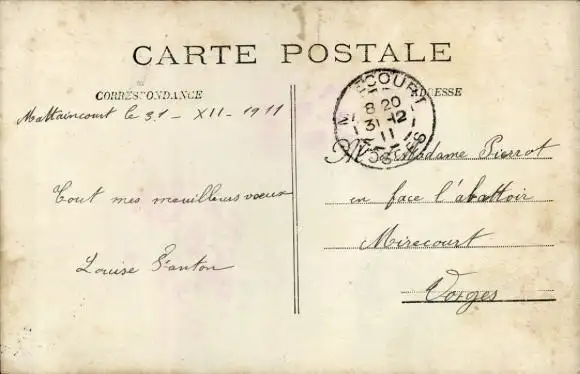 CARTE POSTALE
CORRESPONDANCE
ADRESSE
Mattaincourt le 31 - XII - 1911
Tout mes meuilleurs voeux
Louise
MIRECOURT
8 20
31 - 12
11
VOSGES
Madame Pierrot
en face l'abattoir
Mirecourt
Vosges